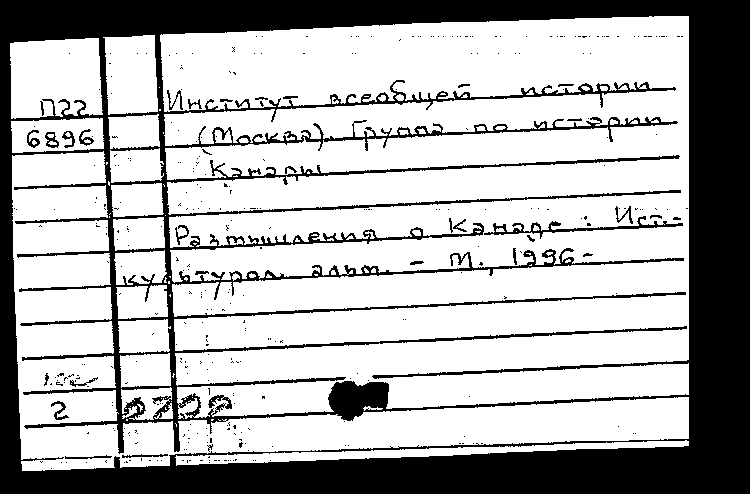 П22 Институт всеобщей истории
6896 (Москва). Группа по истории
Канады
Размышления о Канаде : Ист.-
культурол. альм. - М., 1996-
2